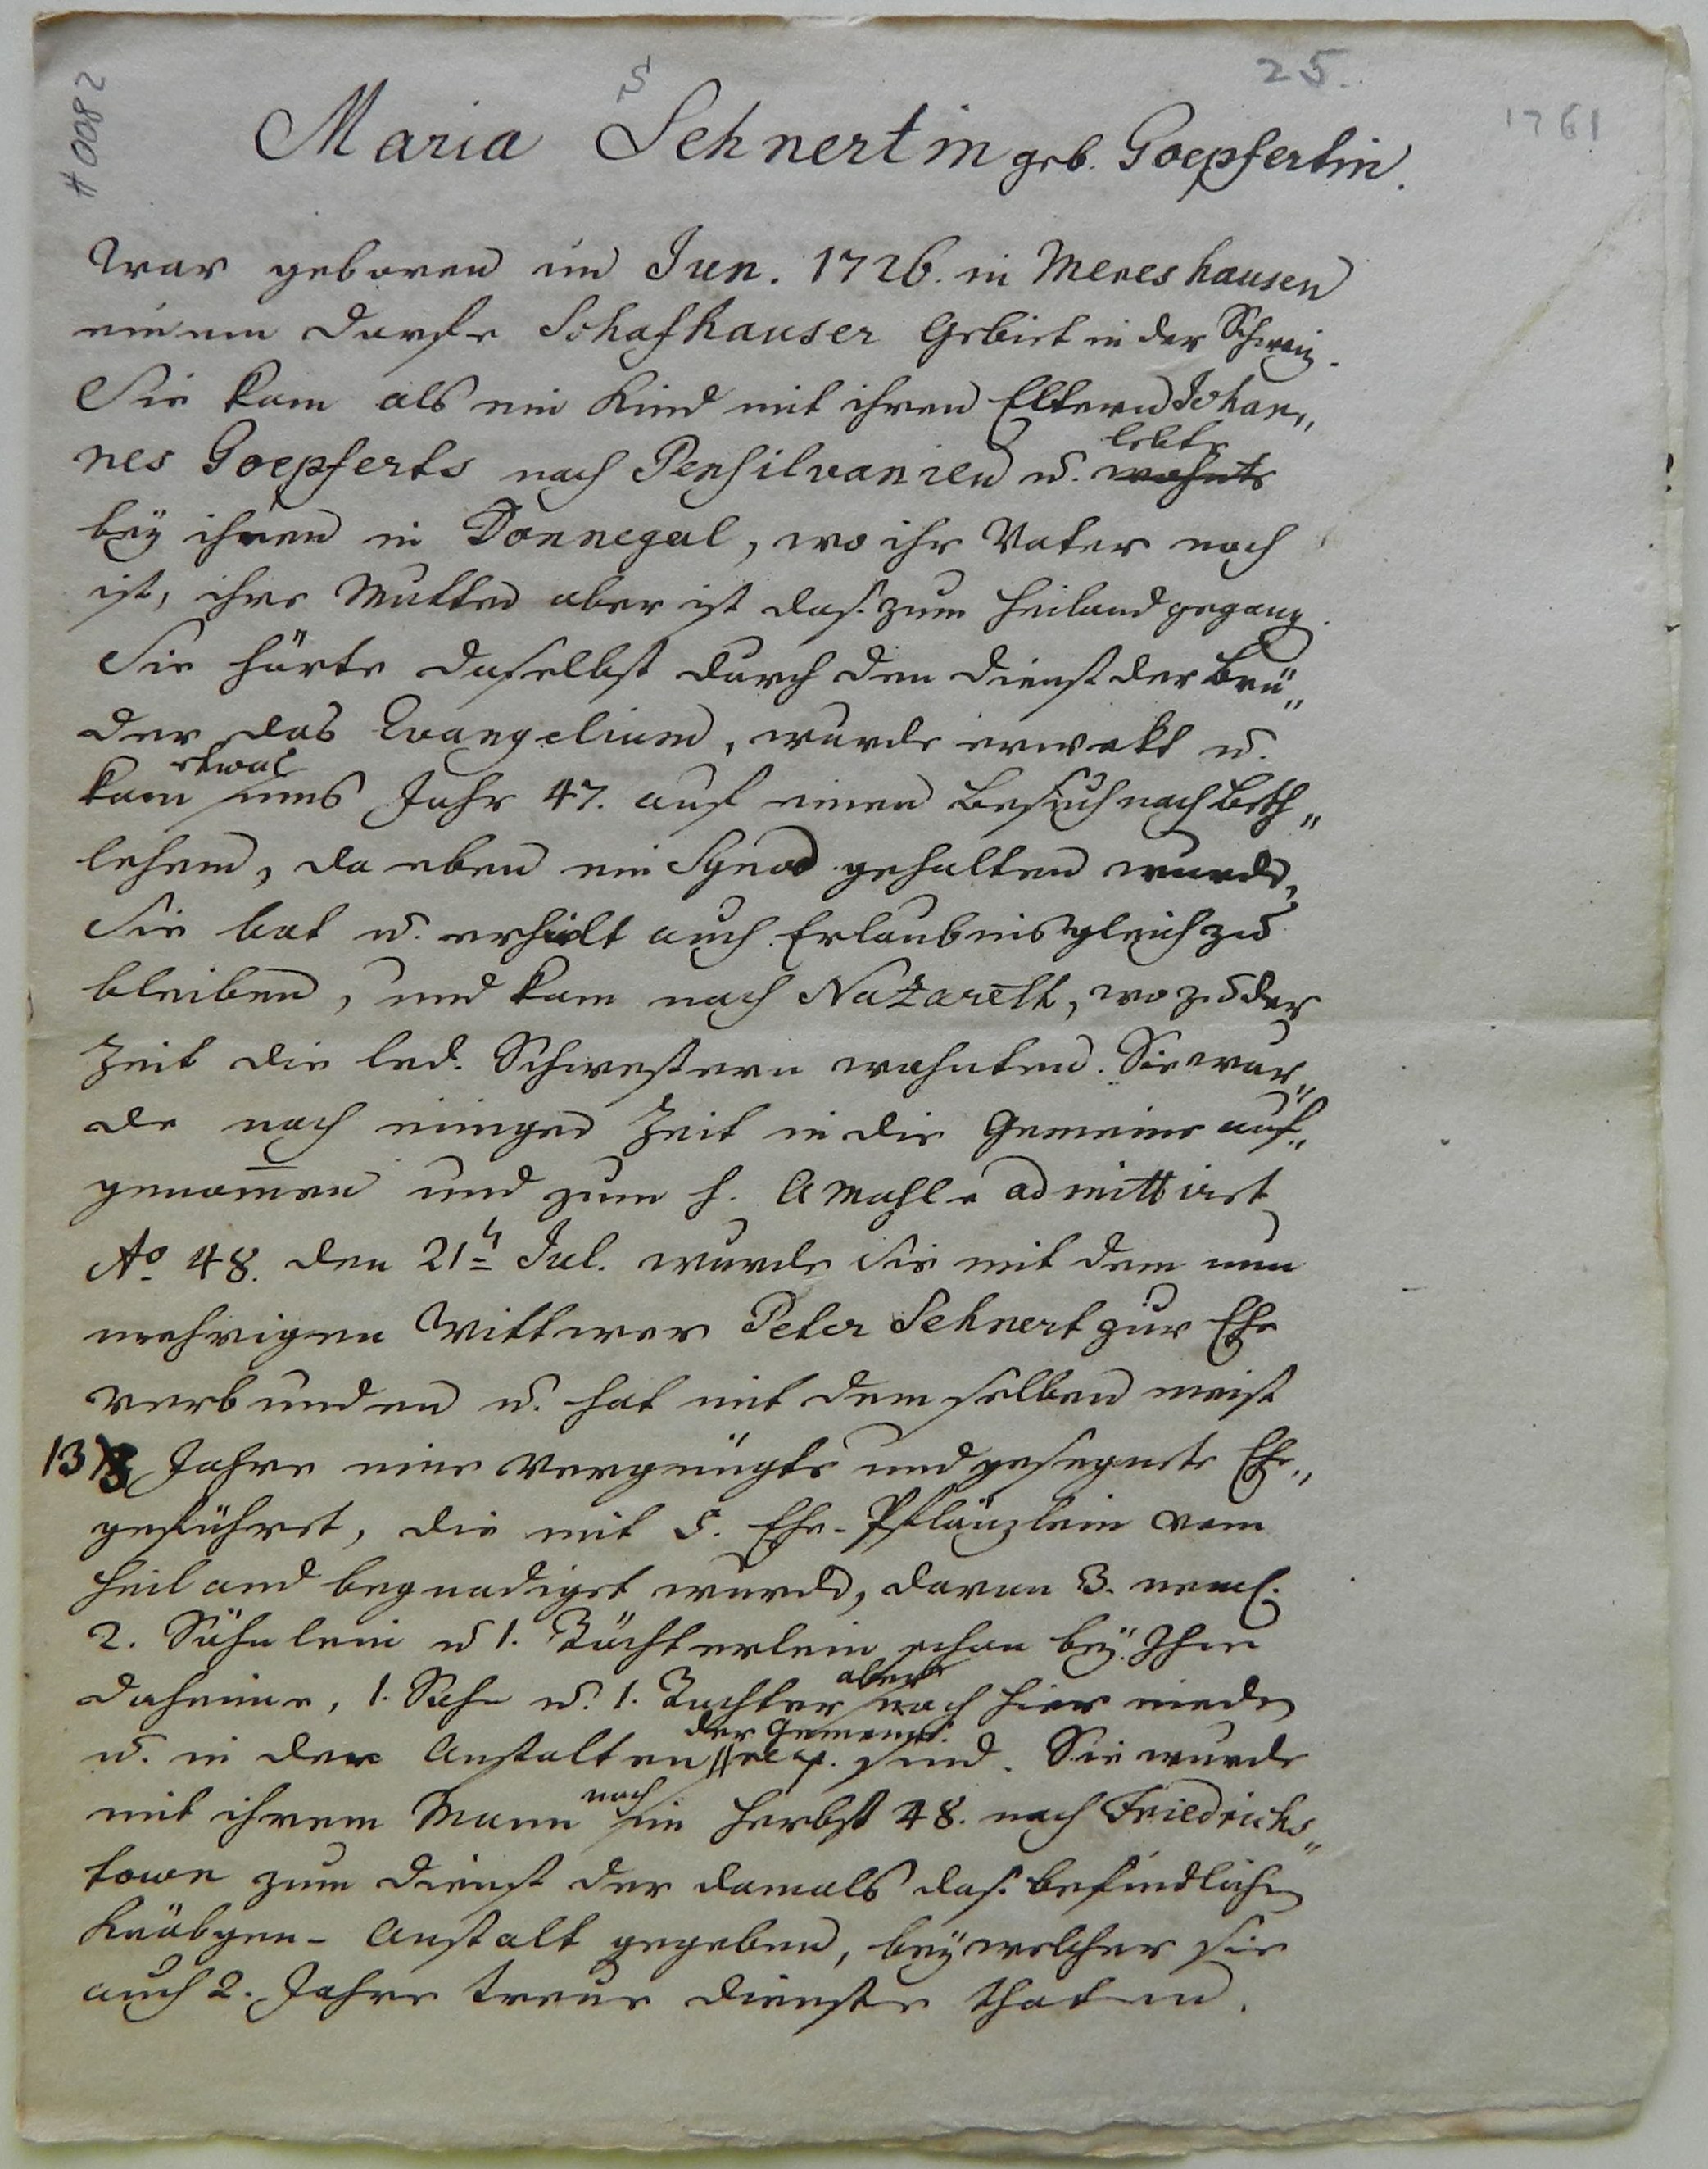 25.
1761
# 0082
S
Maria Sehnertin geb. Goepfertin.
War geboren im Jun. 1726. in Mereshausen
einem Dorfe Schafhauser Gebiet in der Schweiz.
Sie kam als ein Kind mit ihren Eltern Johan„
nes Goepferts nach Pensilvanien u. wohnte lebte
bey ihnen in Donnegal, wo ihr Vater noch
ist, ihre Mutter aber ist das. zum Heiland gegang.
Sie hörte daselbst durch den Dienst der Brü„
der das Evangelium, wurde erwekt u.
kam etwas ums Jahr 47. auf einen Besuch nach Beth„
lehem, da eben ein Synod gehalten wurde,
Sie bat u. erhielt auch Erlaubnis gleich zu
bleiben, und kam nach Nazareth, wo zu der
Zeit die led. Schwestern wohnten. Sie wur„
de nach einiger Zeit in die Gemeine auf„
genom̅en und zum h. Amahle admittiret
Ao. 48. den 21n Jul. wurde sie mit dem nun
mehrigen Wittwer Peter Sehnert zur Ehe
verbunden u. hat mit demselben meist
13 Jahre eine vergnügte und gesegnete Ehe„
geführet, die mit 5. Ehe-Pflänzlein vom
Heiland begnadiget wurde, davon 3. neml.
2. Söhnlein u 1. Töchterlein schon bey Ihm
daheime, 1. Sohn u. 1. Tochter aber noch hier nieden
u. in den Anstalten der Gemeine sind. Sie wurde
mit ihrem Mann noch im Herbst 48. nach Friedrichs„
town zum Dienst der damals das. befindlichen
Knäbgen-Anstalt gegeben, bey welcher sie
auch 2. Jahre treue Dienste thaten.